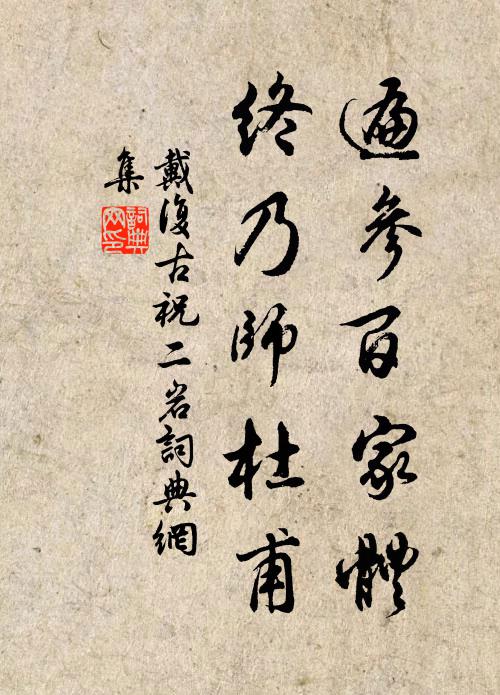 遍參百家體
終乃師杜甫
戴復古祝二岩詞典網
集
詞典
网印